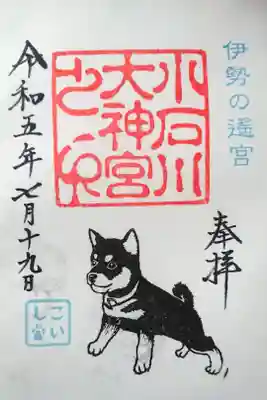 伊勢の遙宮
奉拝
小石川
大神宮
之印
令和五年七月十九日
こい
し宮